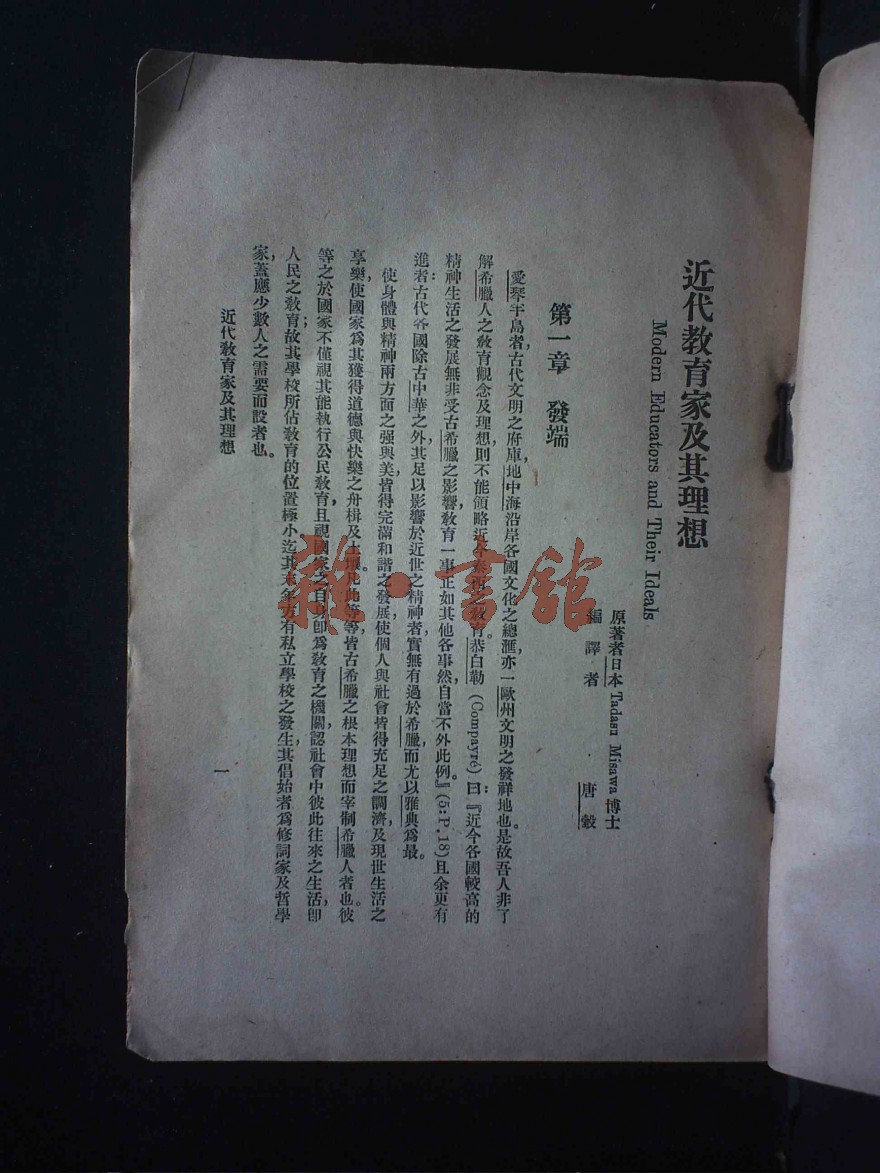 近代教育家及其理想
Modern Educators and Their Ideals
原著者日本 Tadasu Misawa 博士
編譯者 唐瑴
第一章 發端
愛琴半島者,古代文明之府庫,地中海沿岸各國文化之總滙,亦一歐州文明之發祥地也。是故吾人非了
解希臘人之教育觀念及理想,則不能領略近今泰西之教育。恭白勒 (Compayré) 曰:『近今各國較高的
精神生活之發展,無非受古希臘之影響,教育一事,正如其他各事然,自當不外此例。』(5:P.18)且余更有
進者:古代各國,除古中華之外,其足以影響於近世之精神者,實無有過於希臘,而尤以雅典爲最。
使身體與精神兩方面之强與美,皆得完滿和諧之發展,使個人與社會皆得充足之調濟及現世生活之
享樂,使國家爲其獲得道德與快樂之舟楫及土壤,凡此等等,皆古希臘之根本理想而宰制希臘人者也。彼
等之於國家,不僅視其能執行公民教育,且視國家之自身卽爲教育之機關,認社會中彼此往來之生活,卽
人民之教育;故其學校所佔教育的位置極小,迄其末年,方有私立學校之發生,其倡始者爲修詞家及哲學
家,蓋應少數人之需要而設者也。
近代教育家及其理想
一
雜·書館